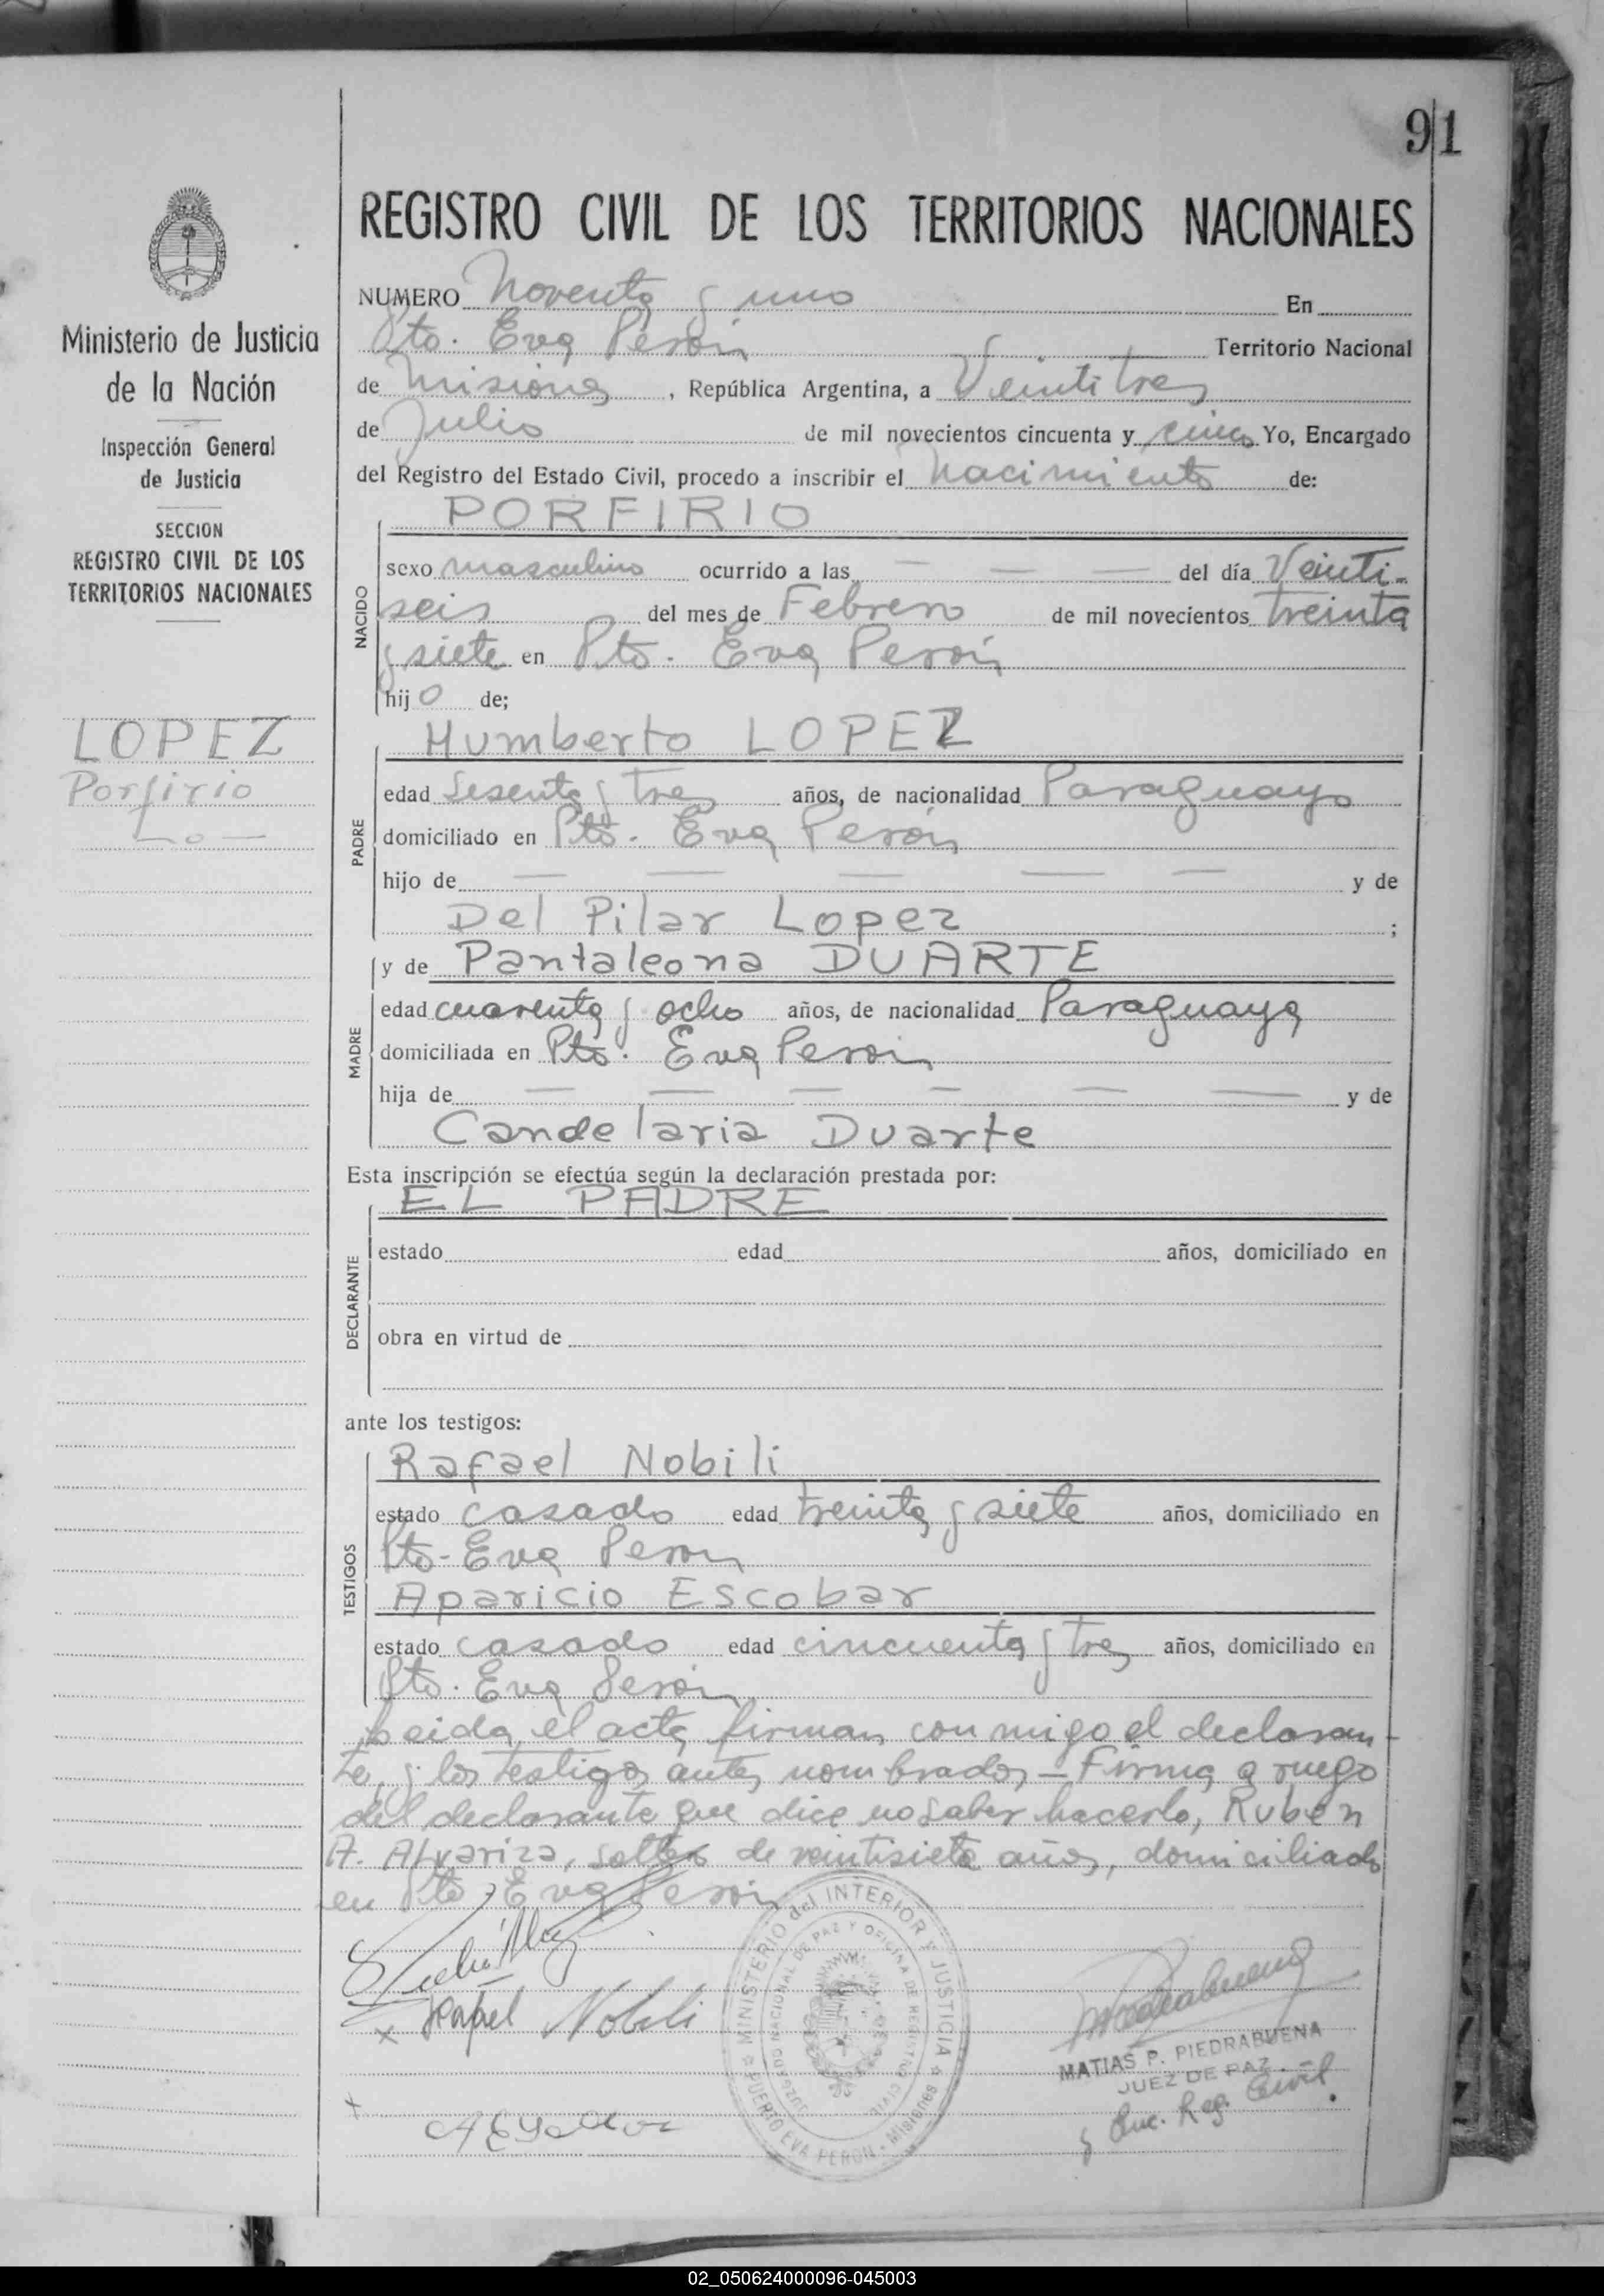 91
REGISTRO CIVIL DE LOS TERRITORIOS NACIONALES
Ministerio de Justicia
de la Nación
Inspección General
de Justicia
SECCION
REGISTRO CIVIL DE LOS
TERRITORIOS NACIONALES
LOPEZ
Porfirio
NUMERO Noventa y uno En
Pto. Eva Perón Territorio Nacional
de Misiones, República Argentina, a Veintitres
de Julio de mil novecientos cincuenta y cinco Yo, Encargado
del Registro del Estado Civil, procedo a inscribir el nacimiento de:
NACIDO
PORFIRIO
sexo masculino ocurrido a las — — — del día Veinti-
seis del mes de Febrero de mil novecientos treinta
y siete en Pto. Eva Perón
hijo de;
PADRE
Humberto LOPEZ
edad Sesenta y tres años, de nacionalidad Paraguayo
domiciliado en Pto. Eva Perón
hijo de — — — — — y de
Del Pilar Lopez ;
MADRE
y de Pantaleona DUARTE
edad cuarenta y ocho años, de nacionalidad Paraguaya
domiciliada en Pto. Eva Perón
hija de — — — — — — y de
Candelaria Duarte
Esta inscripción se efectúa según la declaración prestada por:
DECLARANTE
EL PADRE
estado edad años, domiciliado en
obra en virtud de
ante los testigos:
TESTIGOS
Rafael Nobili
estado casado edad treinta y siete años, domiciliado en
Pto- Eva Peron
Aparicio Escobar
estado casado edad cincuenta y tres años, domiciliado en
Pto. Eva Perón
Leida el acta firman con migo el declaran-
te, y los testigos antes nombrados — Firma a ruego
del declarante que dice no saber hacerlo, Ruben
A. Alvariza, soltero de veintisiete años, domiciliado
en Pto. Eva Perón
Rafael Nobili
MINISTERIO del INTERIOR Y JUSTICIA
JUZGADO NACIONAL DE PAZ Y OFICINA DE REGISTRO CIVIL
PUERTO EVA PERON - Misiones
MATIAS P. PIEDRABUENA
JUEZ DE PAZ
y Enc. Reg. Civil.
02_050624000096-045003